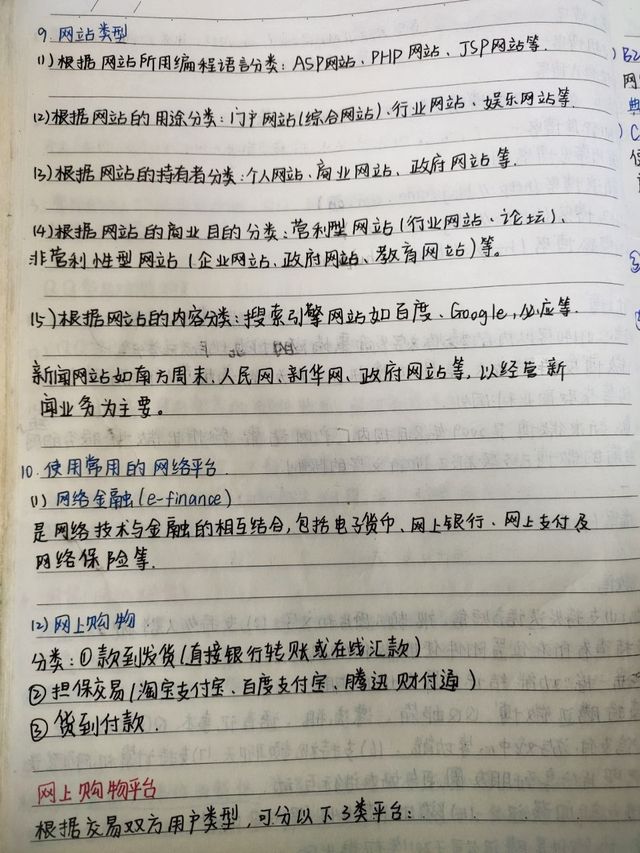 9. 网站类型
(1)根据网站所用编程语言分类：ASP网站、PHP网站、JSP网站等.
(2)根据网站的用途分类：门户网站(综合网站)、行业网站、娱乐网站等.
(3)根据网站的持有者分类：个人网站、商业网站、政府网站等.
(4)根据网站的商业目的分类：营利型网站(行业网站、论坛)、
非营利性型网站(企业网站、政府网站、教育网站)等。
(5)根据网站的内容分类：搜索引擎网站如百度、Google,必应等.
新闻网站如南方周末、人民网、新华网、政府网站等,以经营新
闻业务为主要。
10. 使用常用的网络平台.
(1) 网络金融(e-finance)
是网络技术与金融的相互结合,包括电子货币、网上银行、网上支付及
网络保险等.
(2)网上购物.
分类：①款到发货(直接银行转账或在线汇款)
②担保交易(淘宝支付宝、百度支付宝、腾迅财付通)
③货到付款.
网上购物平台
根据交易双方用户类型,可分以下3类平台：